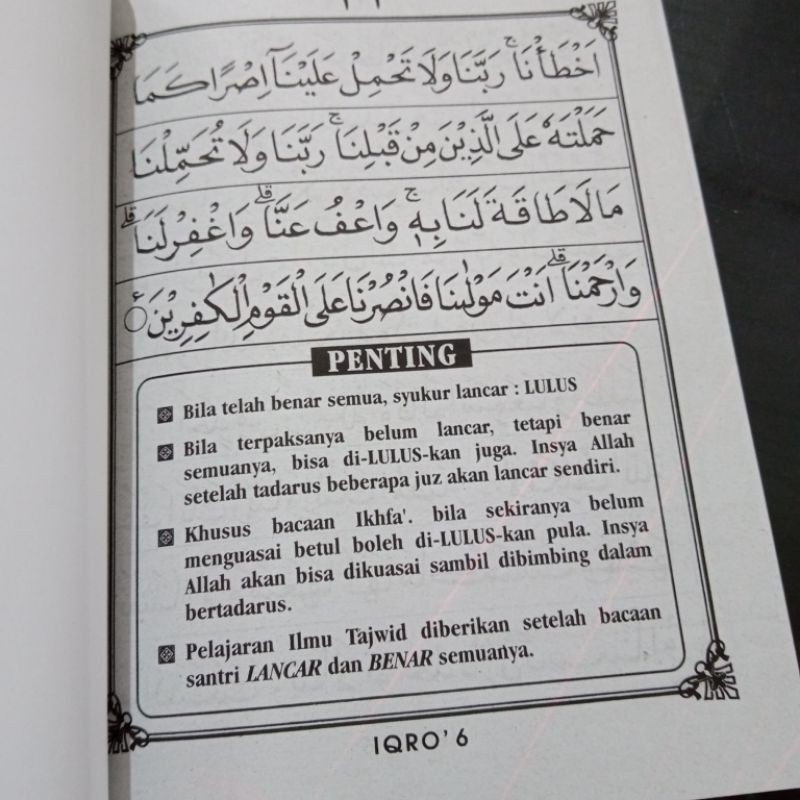 اَخْطَأْنَا ۚ رَبَّنَا وَلَا تَحْمِلْ عَلَيْنَآ اِصْرًا كَمَا
حَمَلْتَهٗ عَلَى الَّذِيْنَ مِنْ قَبْلِنَا ۚ رَبَّنَا وَلَا تُحَمِّلْنَا
مَالَا طَاقَةَ لَنَا بِهٖ ۚ وَاعْفُ عَنَّا ۗ وَاغْفِرْ لَنَا ۗ
وَارْحَمْنَا ۗ اَنْتَ مَوْلٰىنَا فَانْصُرْنَا عَلَى الْقَوْمِ الْكٰفِرِيْنَ
PENTING
Bila telah benar semua, syukur lancar : LULUS
Bila terpaksanya belum lancar, tetapi benar
semuanya, bisa di-LULUS-kan juga. Insya Allah
setelah tadarus beberapa juz akan lancar sendiri.
Khusus bacaan Ikhfa'. bila sekiranya belum
menguasai betul boleh di-LULUS-kan pula. Insya
Allah akan bisa dikuasai sambil dibimbing dalam
bertadarus.
Pelajaran Ilmu Tajwid diberikan setelah bacaan
santri LANCAR dan BENAR semuanya.
IQRO' 6